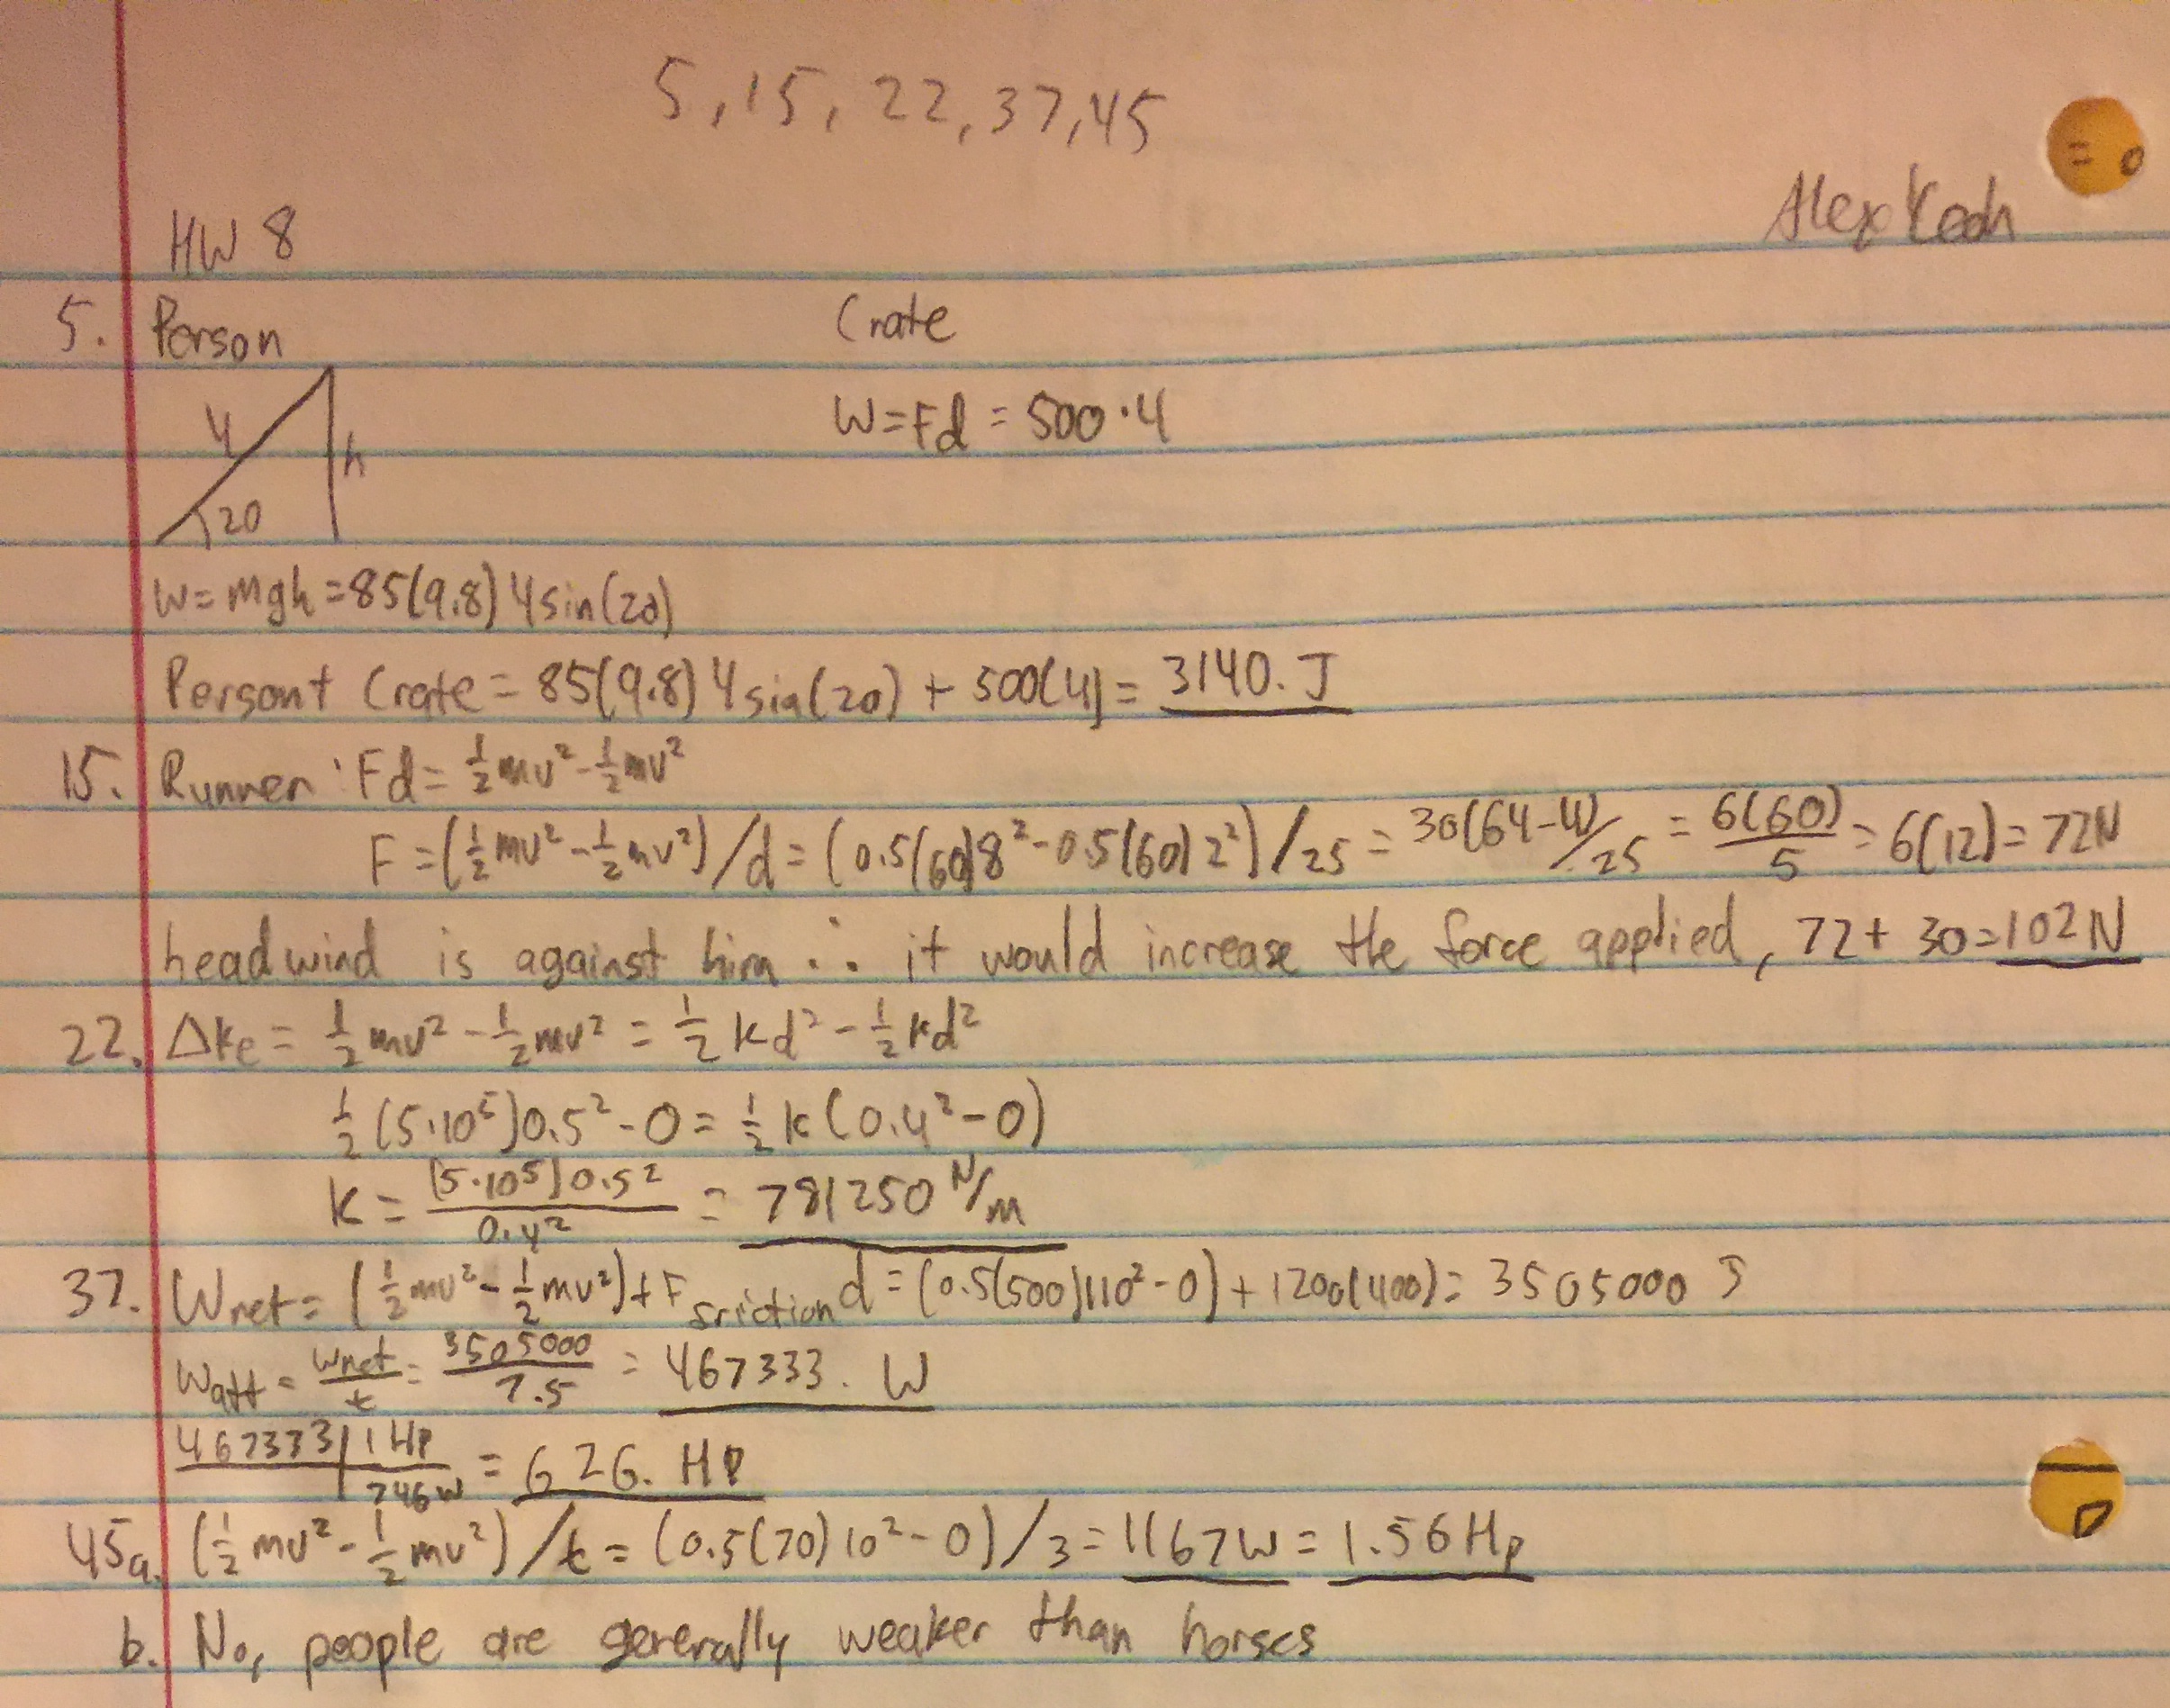 5, 15, 22, 37, 45
Alex
HW 8
5. Person
Crate
4
h
20
W=Fd = 500·4
W= mgh = 85(9.8) 4sin(20)
Person+ Crate = 85(9.8) 4sin(20) + 500(4) = 3140. J
15. Runner: Fd = ½mv² - ½mv²
F = (½mv² - ½mv²)/d = (0.5(60)8² - 0.5(60)2²)/25 = 30(64-4)/25 = 6(60)/5 = 6(12) = 72N
headwind is against him ∴ it would increase the force applied, 72 + 30 = 102N
22. Δke = ½mv² - ½mv² = ½kd² - ½kd²
½(5·10⁵)0.5² - 0 = ½k(0.4² - 0)
k = (5·10⁵)0.5²/0.4² = 781250 N/m
37. Wnet = (½mv² - ½mv²) + Ffriction d = (0.5(500)110² - 0) + 1200(400) = 3505000 J
Watt = Wnet/t = 3505000/7.5 = 467333. W
467333 | 1 HP / 746W = 626. HP
45a. (½mv² - ½mv²)/t = (0.5(70)10² - 0)/3 = 1167W = 1.56 Hp
b. No, people are generally weaker than horses